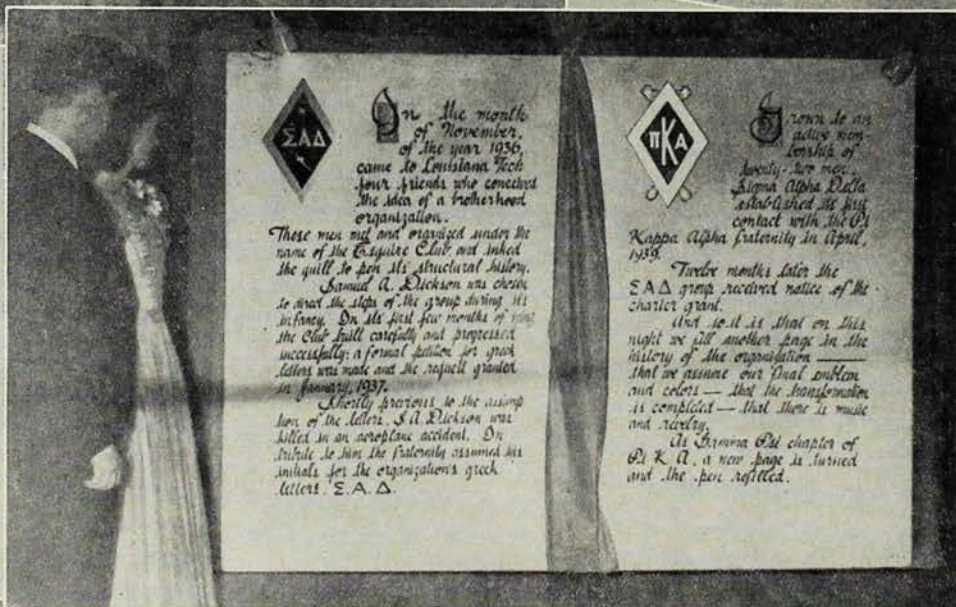 ΣΑΔ
In the month
of November,
of the year 1936,
came to Louisiana Tech
four friends who conceived
the idea of a brotherhood
organization.
These men met and organized under the
name of the Esquire Club, and inked
the quill to pen its structural history.
Samuel A. Dickson was chosen
to direct the steps of the group during its
infancy. In its first few months of
the Club built carefully and progressed
successfully; a formal petition for greek
letters was made and the request granted
in January, 1937.
Shortly previous to the assump
tion of the letters, S. A. Dickson was
killed in an aeroplane accident. In
tribute to him the fraternity assumed his
initials for the organization's greek
letters. Σ. Α. Δ.
ΠΚΑ
Grown to an
active mem-
bership of
twenty-two men,
Sigma Alpha Delta
established its first
contact with the Pi
Kappa Alpha fraternity in April,
1939.
Twelve months later the
ΣΑΔ group received notice of the
charter grant.
And so it is that on this
night we fill another page in the
history of the organization —
that we assume our final emblem
and colors — that the transformation
is completed — that there is music
and revelry.
As Gamma Psi chapter of
Pi K. A., a new page is turned
and the pen refilled.